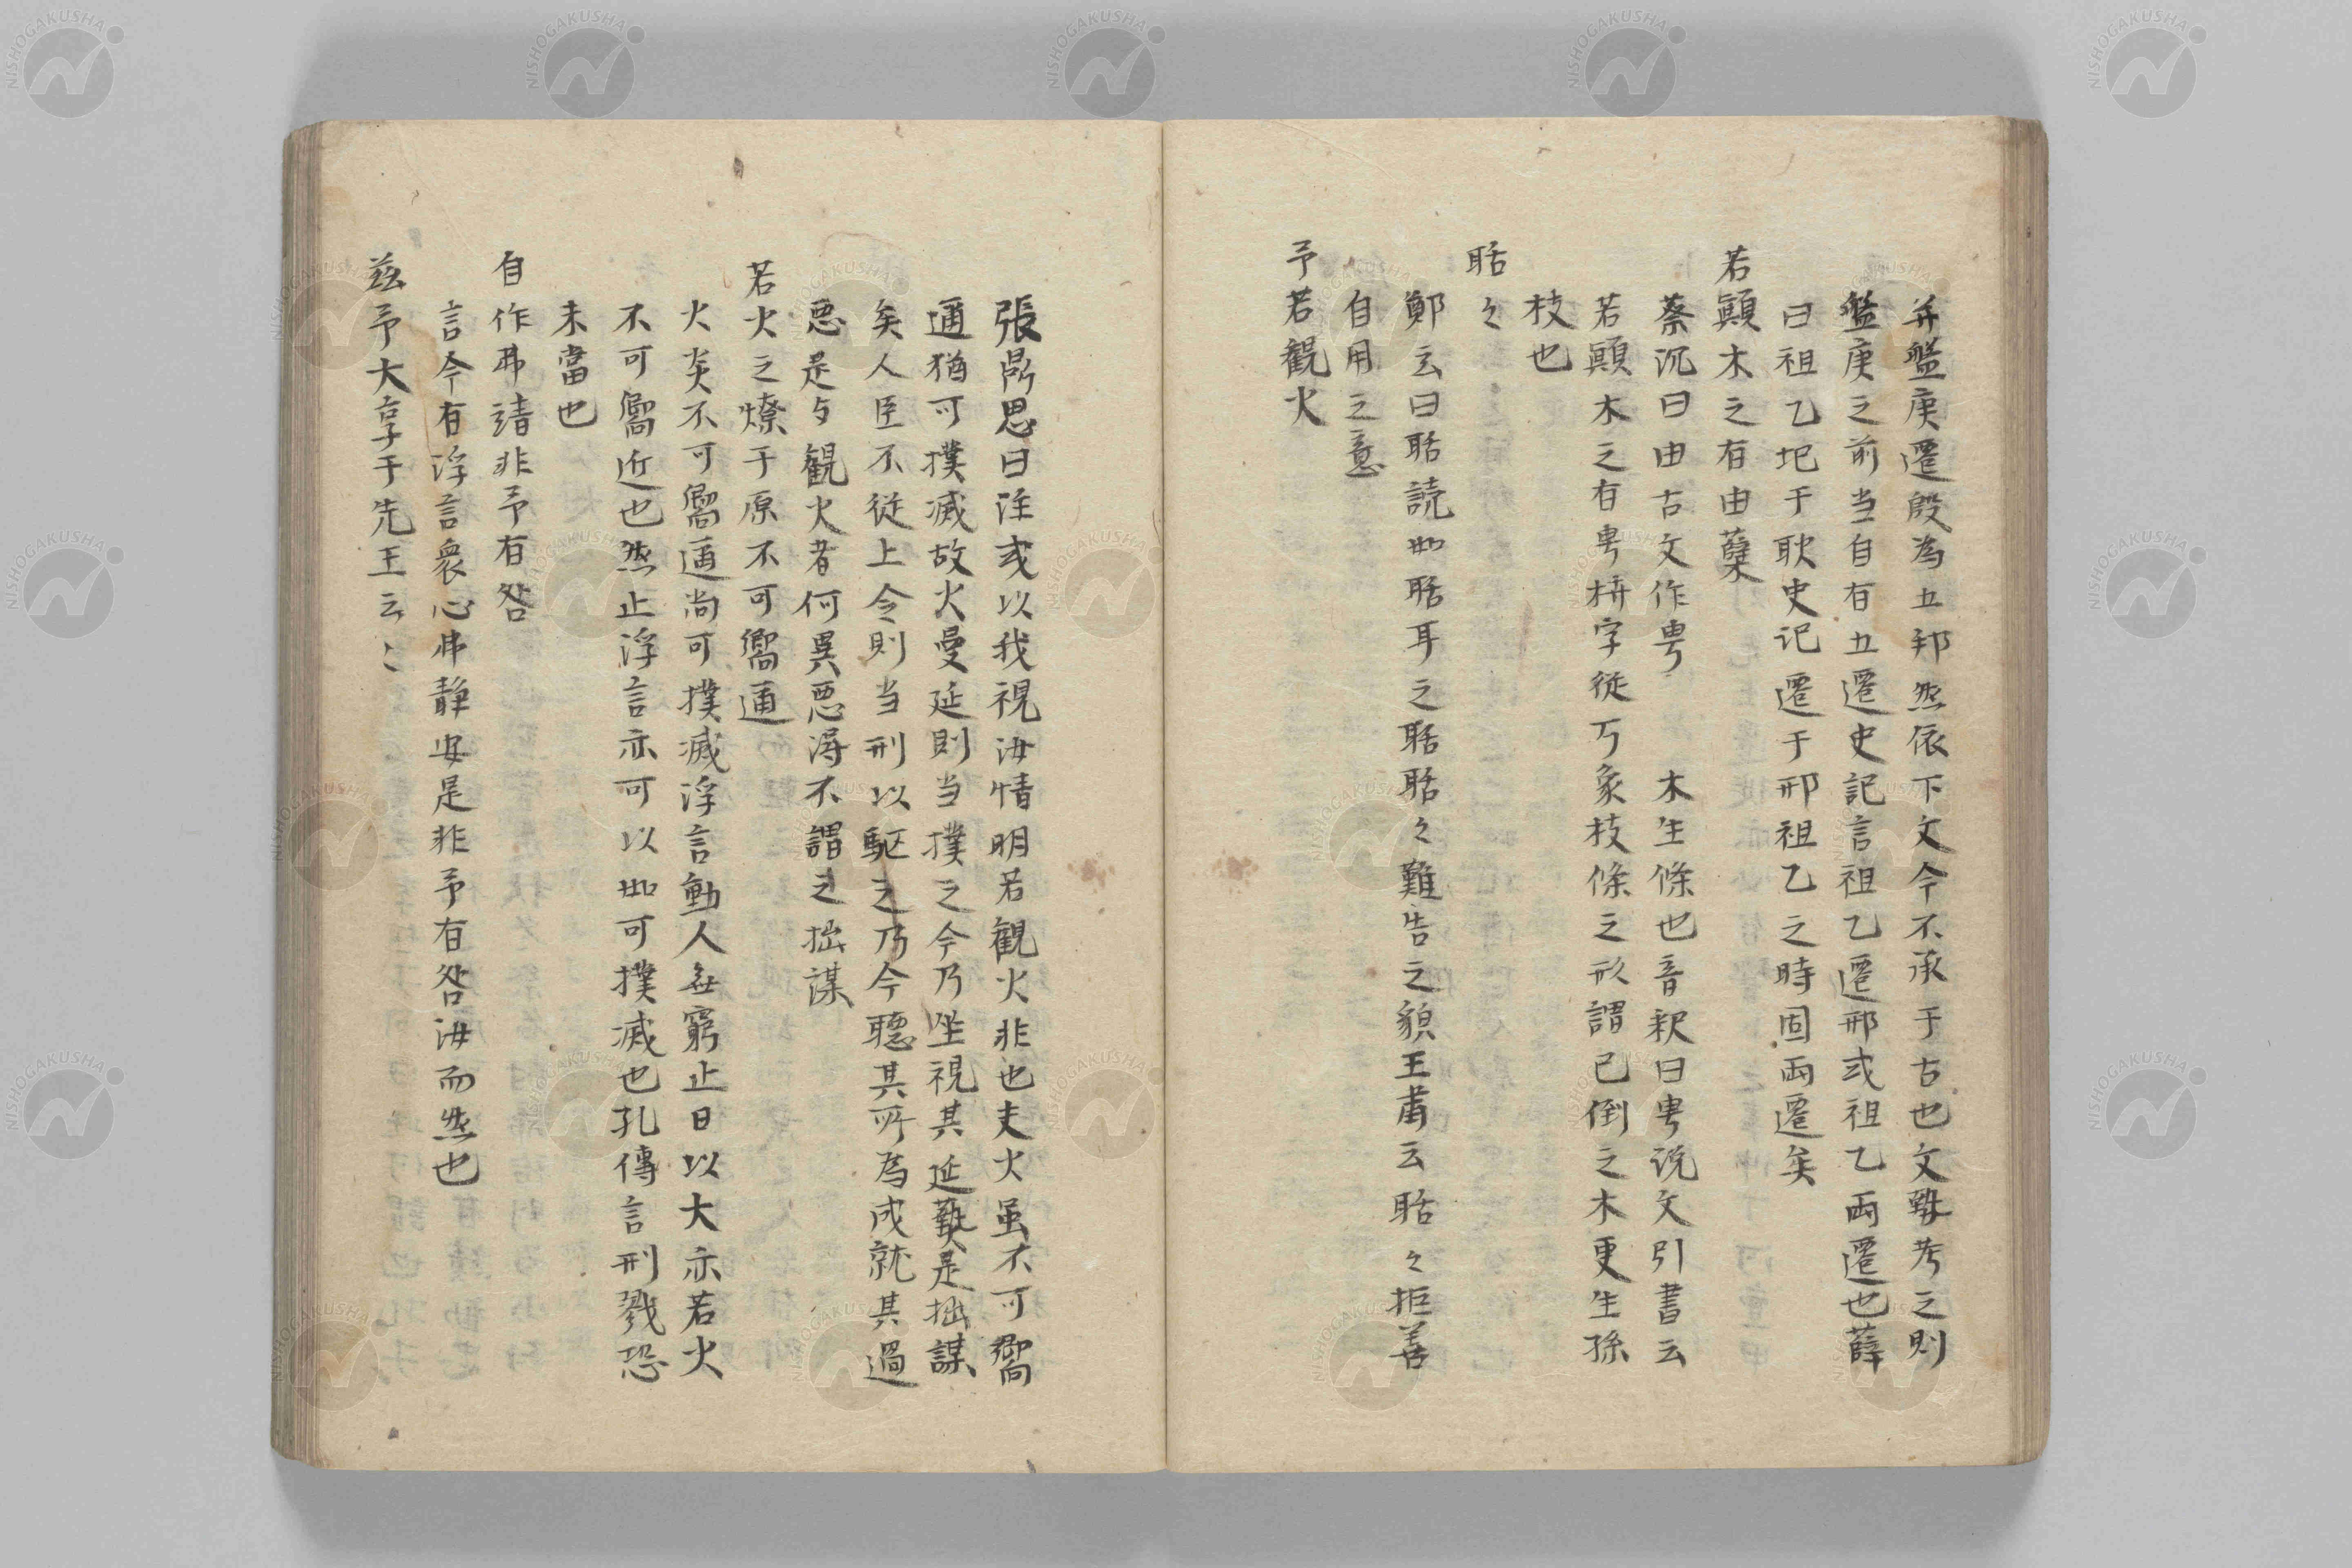 并盤庚遷殷為五邦然依下文今不承于古也文勢考之則
盤庚之前当自有五遷史記言祖乙遷邢或祖乙両遷也薛
曰祖乙圯于耿史记遷于邢祖乙之時固両遷矣
若顛木之有由蘖
蔡沉曰由古文作甹 木生條也音釈曰甹说文引書云
若顛木之有甹枿字従丂象枝條之形謂已倒之木更生孫
枝也
聒々
鄭云曰聒読如聒耳之聒聒々難告之貌王肅云聒々拒善
自用之意
予若観火
張鼎思曰注或以我視汝情明若観火非也夫火虽不可嚮
邇猶可撲滅故火曼延則当撲之今乃坐視其延爇是拙謀
矣人臣不従上令則当刑以駆之乃今聴其所為成就其過
悪是与観火者何異悪得不謂之拙謀
若火之燎于原不可嚮邇
火炎不可嚮邇尚可撲滅浮言動人無窮止日以大亦若火
不可嚮近也然止浮言亦可以如可撲滅也孔傳言刑戮恐
未當也
自作弗靖非予有咎
言今有浮言衆心弗静安是非予有咎汝而然也
茲予大享于先王云々
NISHOGAKUSHA